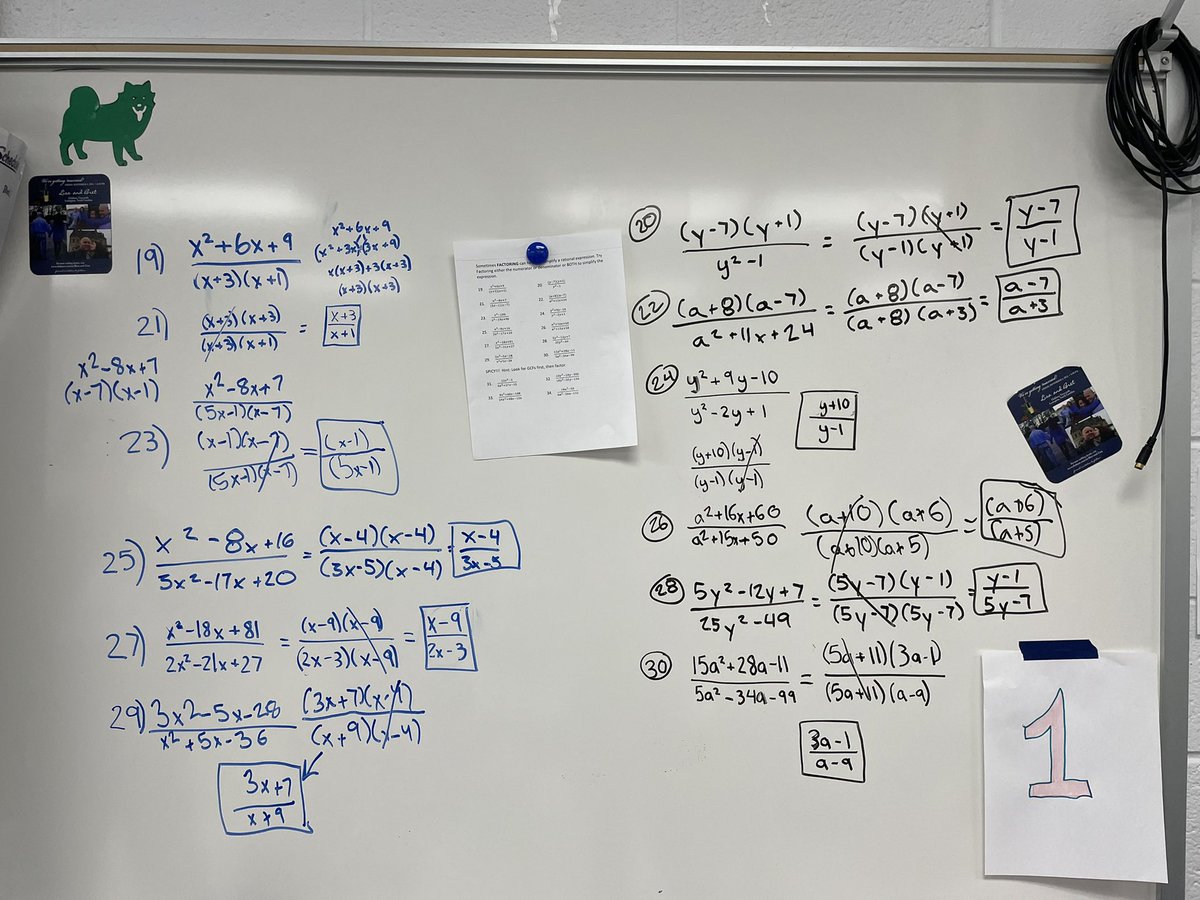 19) x²+6x+9 / (x+3)(x+1)
x²+6x+9
(x²+3x)(3x+9)
x(x+3)+3(x+3)
(x+3)(x+3)
21) (x+3)(x+3) / (x+3)(x+1) = x+3 / x+1
x²-8x+7
(x-7)(x-1)
x²-8x+7 / (5x-1)(x-7)
23) (x-1)(x-7) / (5x-1)(x-7) = (x-1) / (5x-1)
25) x²-8x+16 / 5x²-17x+20 = (x-4)(x-4) / (3x-5)(x-4) = x-4 / 3x-5
27) x²-18x+81 / 2x²-21x+27 = (x-9)(x-9) / (2x-3)(x-9) = x-9 / 2x-3
29) 3x2-5x-28 / x²+5x-36 (3x+7)(x-4) / (x+9)(x-4)
3x+7 / x+9
Sometimes FACTORING can
simplify a rational expression. Try
Factoring either the numerator or denominator or BOTH to simplify the
expression.
19.
20.
21.
22.
23.
24.
25.
26.
27.
28.
29.
30.
SPICY!!! Hint: Look for GCFs first, then factor
31.
32.
33.
34.
20 (y-7)(y+1) / y²-1 = (y-7)(y+1) / (y-1)(y+1) = y-7 / y-1
22 (a+8)(a-7) / a²+11x+24 = (a+8)(a-7) / (a+8)(a+3) = a-7 / a+3
24 y²+9y-10 / y²-2y+1
y+10 / y-1
(y+10)(y-1) / (y-1)(y-1)
26 a²+16x+60 / a²+15x+50 (a+10)(a+6) / (a+10)(a+5) = (a+6) / (a+5)
28 5y²-12y+7 / 25y²-49 = (5y-7)(y-1) / (5y-7)(5y-7) = y-1 / 5y-7
30 15a²+28a-11 / 5a²-34a-99 = (5a+11)(3a-1) / (5a+11)(a-9)
3a-1 / a-9
Lisa and Bret
Lisa and Bret
1